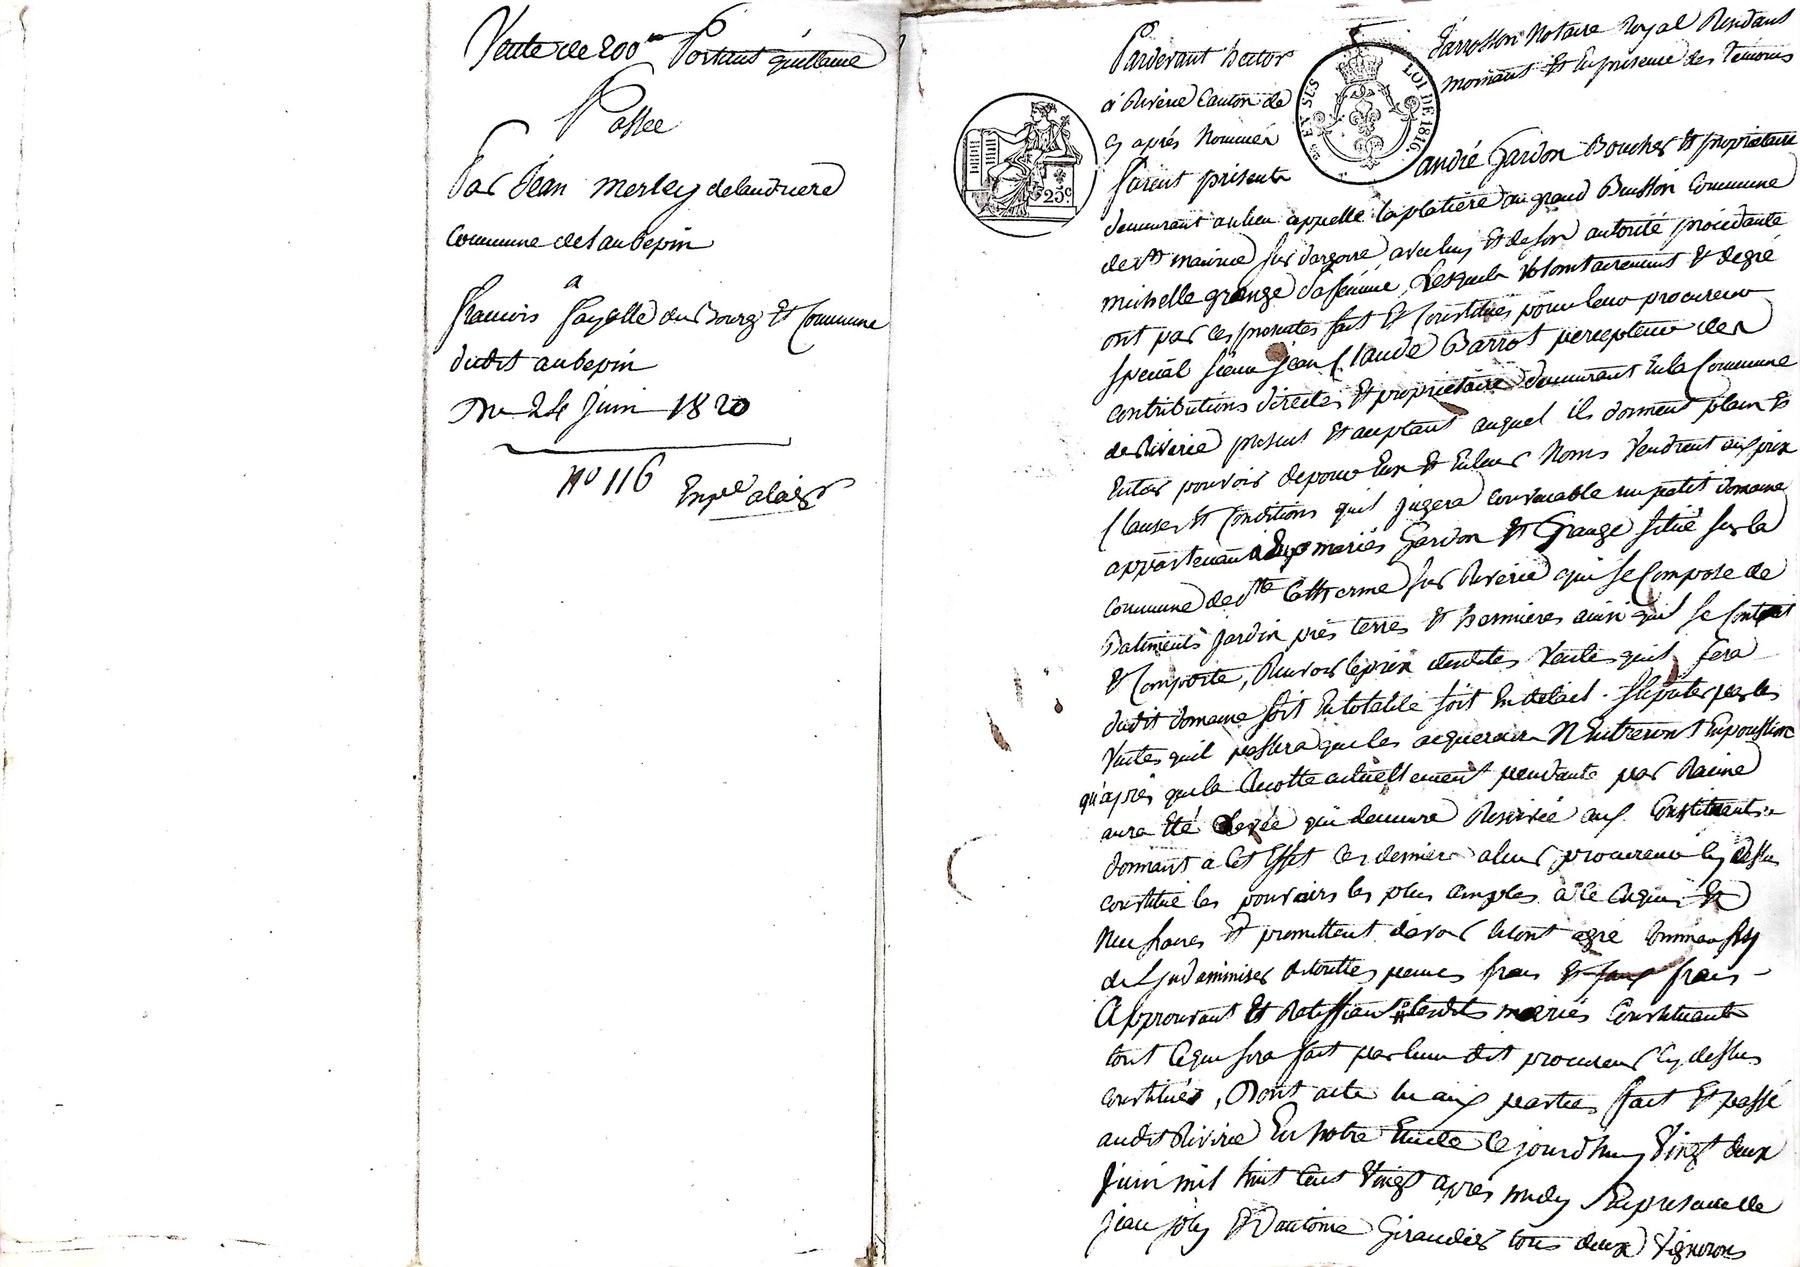 Vente de 200 ff Portant quittance
Passée
Par Jean Merley de lauduere
commune de laubepin
a
francois fayolle du Bourg Et Commune
dudit aubepin
Du 24 Juin 1820
N° 116
Pardevant hector Jarrosson Notaire Royal Residant
a Riverie canton de mornant Et En presence des temoins
cy après Nommés
furent présents andré Gardon Boucher Et propriétaire
demeurant au lieu appelle la platiere au grand Buisson commune
de st maurice sur dargoire avec luy Et de son autorité procédante
michelle grange sa femme, Lesquels volontairement Et de gré
ont par ces presentes fait Et Constitués pour leur procureur
spécial sieur jean Claude Barrot percepteur des
contributions directes Et propriétaire demeurant En la Commune
de Riverie present Et aceptant auquel ils donnent plain Et
Entier pouvoir de pour Eux Et En leurs Noms Vendre aux prix
Clauses Et Conditions quil jugera convenable un petit domaine
appartenant mariés Gardon Et Grange situé sur la
commune de ste Catherine sur Riverie qui se Compose de
Batiments jardin prés terres Et hermieres ainsi quil se Contient
Et Comporte, Recevoir le prix desdites Ventes quil fera
dudit domaine soit En totalité soit En détail. Stipuler par les
Ventes quil passera que les acquereurs N'Entreront En possession
qu'après que la Recolte actuellement pendante par Racine
aura Eté levée qui demeure Reservée aux Constituants
donnant a Cet Effet Ces derniers a leur procureur Cy dessus
constitué les pouvoirs les plus amples a Ce Requis Et
Necessaires Et promettent davoir le tout agré Comme aussy
de L'indemniser de touttes peines frais Et faux frais
Approuvant Et Ratiffiant lesdits mariés Constituants
tout Ceque sera fait par leur dit procureur Cy dessus
constitué, Dont acte lu aux parties fait Et passé
audit Riverie En notre Etude Ce jourdhuy Vingt deux
Juin mil huit Cent Vingt après midy En presence de
jean joly Et d'antoine Giraudier tous deux Vignerons
25 C
LOI DE 1816.